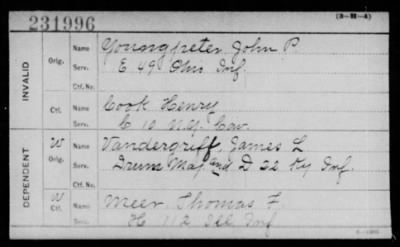 231996
(3-H-4)
INVALID
Orig.
Name Youngpeter, John P.
Serv. E 49 Ohio Inf.
Ctf. No.
Ctf.
Name Cook Henry
Serv. C 10 N.Y. Cav.
DEPENDENT
W
Orig.
Name Vandergriff, James L
Serv. Drum Maj and D 22 Ky Inf.
Ctf. No.
W
Ctf.
Name Meer Thomas F.
Serv. H 112 Ill Inf